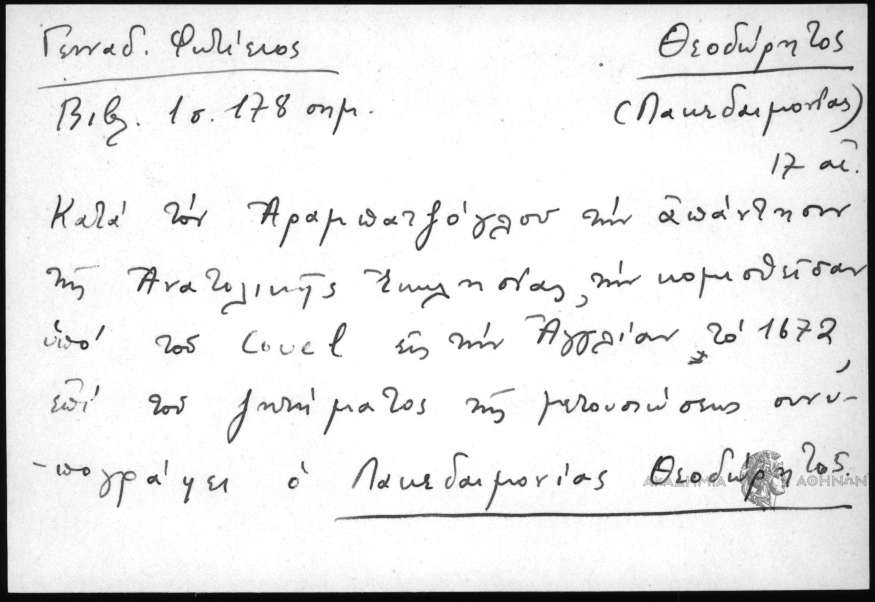 Γενναδ. Φωτίειος Θεοδώρητος
Βιβλ. 1 σ. 178 σημ. (Λακεδαιμονίας)
17 αἰ.
Κατά τόν Ἀραμπατζόγλου τήν ἀπάντησιν
τῆς Ἀνατολικῆς Ἐκκλησίας, τήν κομισθεῖσαν
ὑπό τοῦ Covel εἰς τήν Ἀγγλίαν τό 1672,
ἐπί τοῦ ζητήματος τῆς μετουσιώσεως συνυ-
-πογράφει ὁ Λακεδαιμονίας Θεοδώρητος.
ΑΚΑΔΗΜΙΑ ΑΘΗΝΩΝ